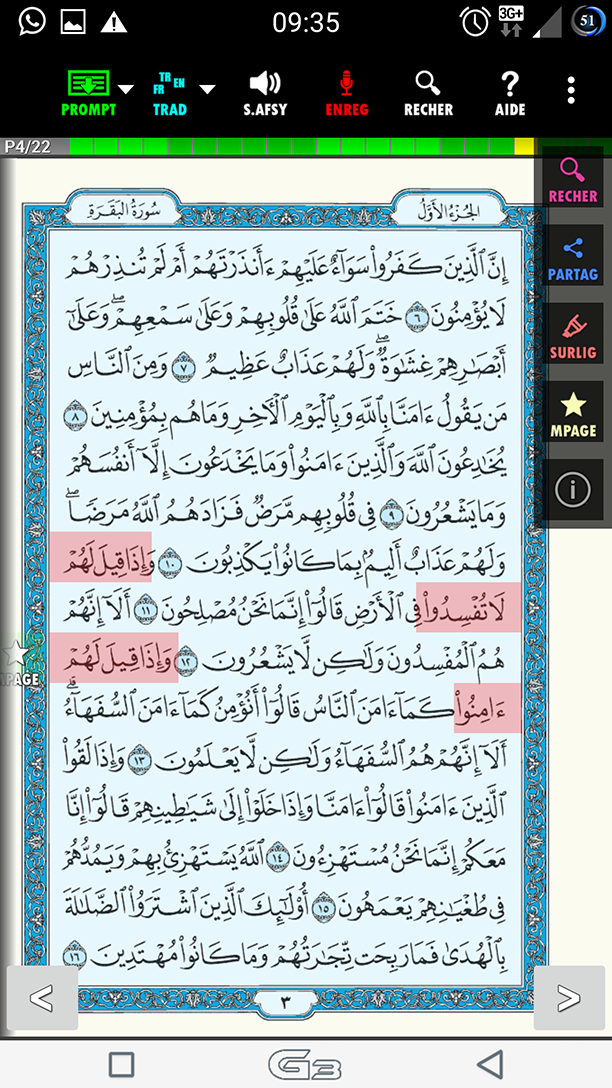 09:35
3G+
51
PROMPT
TR EN FR
TRAD
S.AFSY
ENREG
RECHER
AIDE
P4/22
RECHER
PARTAG
SURLIG
MPAGE
الجزء الأول
سورة البقرة
إِنَّ ٱلَّذِينَ كَفَرُوا۟ سَوَآءٌ عَلَيْهِمْ ءَأَنذَرْتَهُمْ أَمْ لَمْ تُنذِرْهُمْ
لَا يُؤْمِنُونَ ٦ خَتَمَ ٱللَّهُ عَلَىٰ قُلُوبِهِمْ وَعَلَىٰ سَمْعِهِمْ ۖ وَعَلَىٰٓ
أَبْصَـٰرِهِمْ غِشَـٰوَةٌ ۖ وَلَهُمْ عَذَابٌ عَظِيمٌ ٧ وَمِنَ ٱلنَّاسِ
مَن يَقُولُ ءَامَنَّا بِٱللَّهِ وَبِٱلْيَوْمِ ٱلْـَٔاخِرِ وَمَا هُم بِمُؤْمِنِينَ ٨
يُخَـٰدِعُونَ ٱللَّهَ وَٱلَّذِينَ ءَامَنُوا۟ وَمَا يَخْدَعُونَ إِلَّآ أَنفُسَهُمْ
وَمَا يَشْعُرُونَ ٩ فِى قُلُوبِهِم مَّرَضٌ فَزَادَهُمُ ٱللَّهُ مَرَضًا ۖ
وَلَهُمْ عَذَابٌ أَلِيمٌۢ بِمَا كَانُوا۟ يَكْذِبُونَ ١٠ وَإِذَا قِيلَ لَهُمْ
لَا تُفْسِدُوا۟ فِى ٱلْأَرْضِ قَالُوٓا۟ إِنَّمَا نَحْنُ مُصْلِحُونَ ١١ أَلَآ إِنَّهُمْ
هُمُ ٱلْمُفْسِدُونَ وَلَـٰكِن لَّا يَشْعُرُونَ ١٢ وَإِذَا قِيلَ لَهُمْ
ءَامِنُوا۟ كَمَآ ءَامَنَ ٱلنَّاسُ قَالُوٓا۟ أَنُؤْمِنُ كَمَآ ءَامَنَ ٱلسُّفَهَآءُ ۗ
أَلَآ إِنَّهُمْ هُمُ ٱلسُّفَهَآءُ وَلَـٰكِن لَّا يَعْلَمُونَ ١٣ وَإِذَا لَقُوا۟
ٱلَّذِينَ ءَامَنُوا۟ قَالُوٓا۟ ءَامَنَّا وَإِذَا خَلَوْا۟ إِلَىٰ شَيَـٰطِينِهِمْ قَالُوٓا۟ إِنَّا
مَعَكُمْ إِنَّمَا نَحْنُ مُسْتَهْزِءُونَ ١٤ ٱللَّهُ يَسْتَهْزِئُ بِهِمْ وَيَمُدُّهُمْ
فِى طُغْيَـٰنِهِمْ يَعْمَهُونَ ١٥ أُو۟لَـٰٓئِكَ ٱلَّذِينَ ٱشْتَرَوُا۟ ٱلضَّلَـٰلَةَ
بِٱلْهُدَىٰ فَمَا رَبِحَت تِّجَـٰرَتُهُمْ وَمَا كَانُوا۟ مُهْتَدِينَ ١٦
MPAGE
<
٣
>
G3